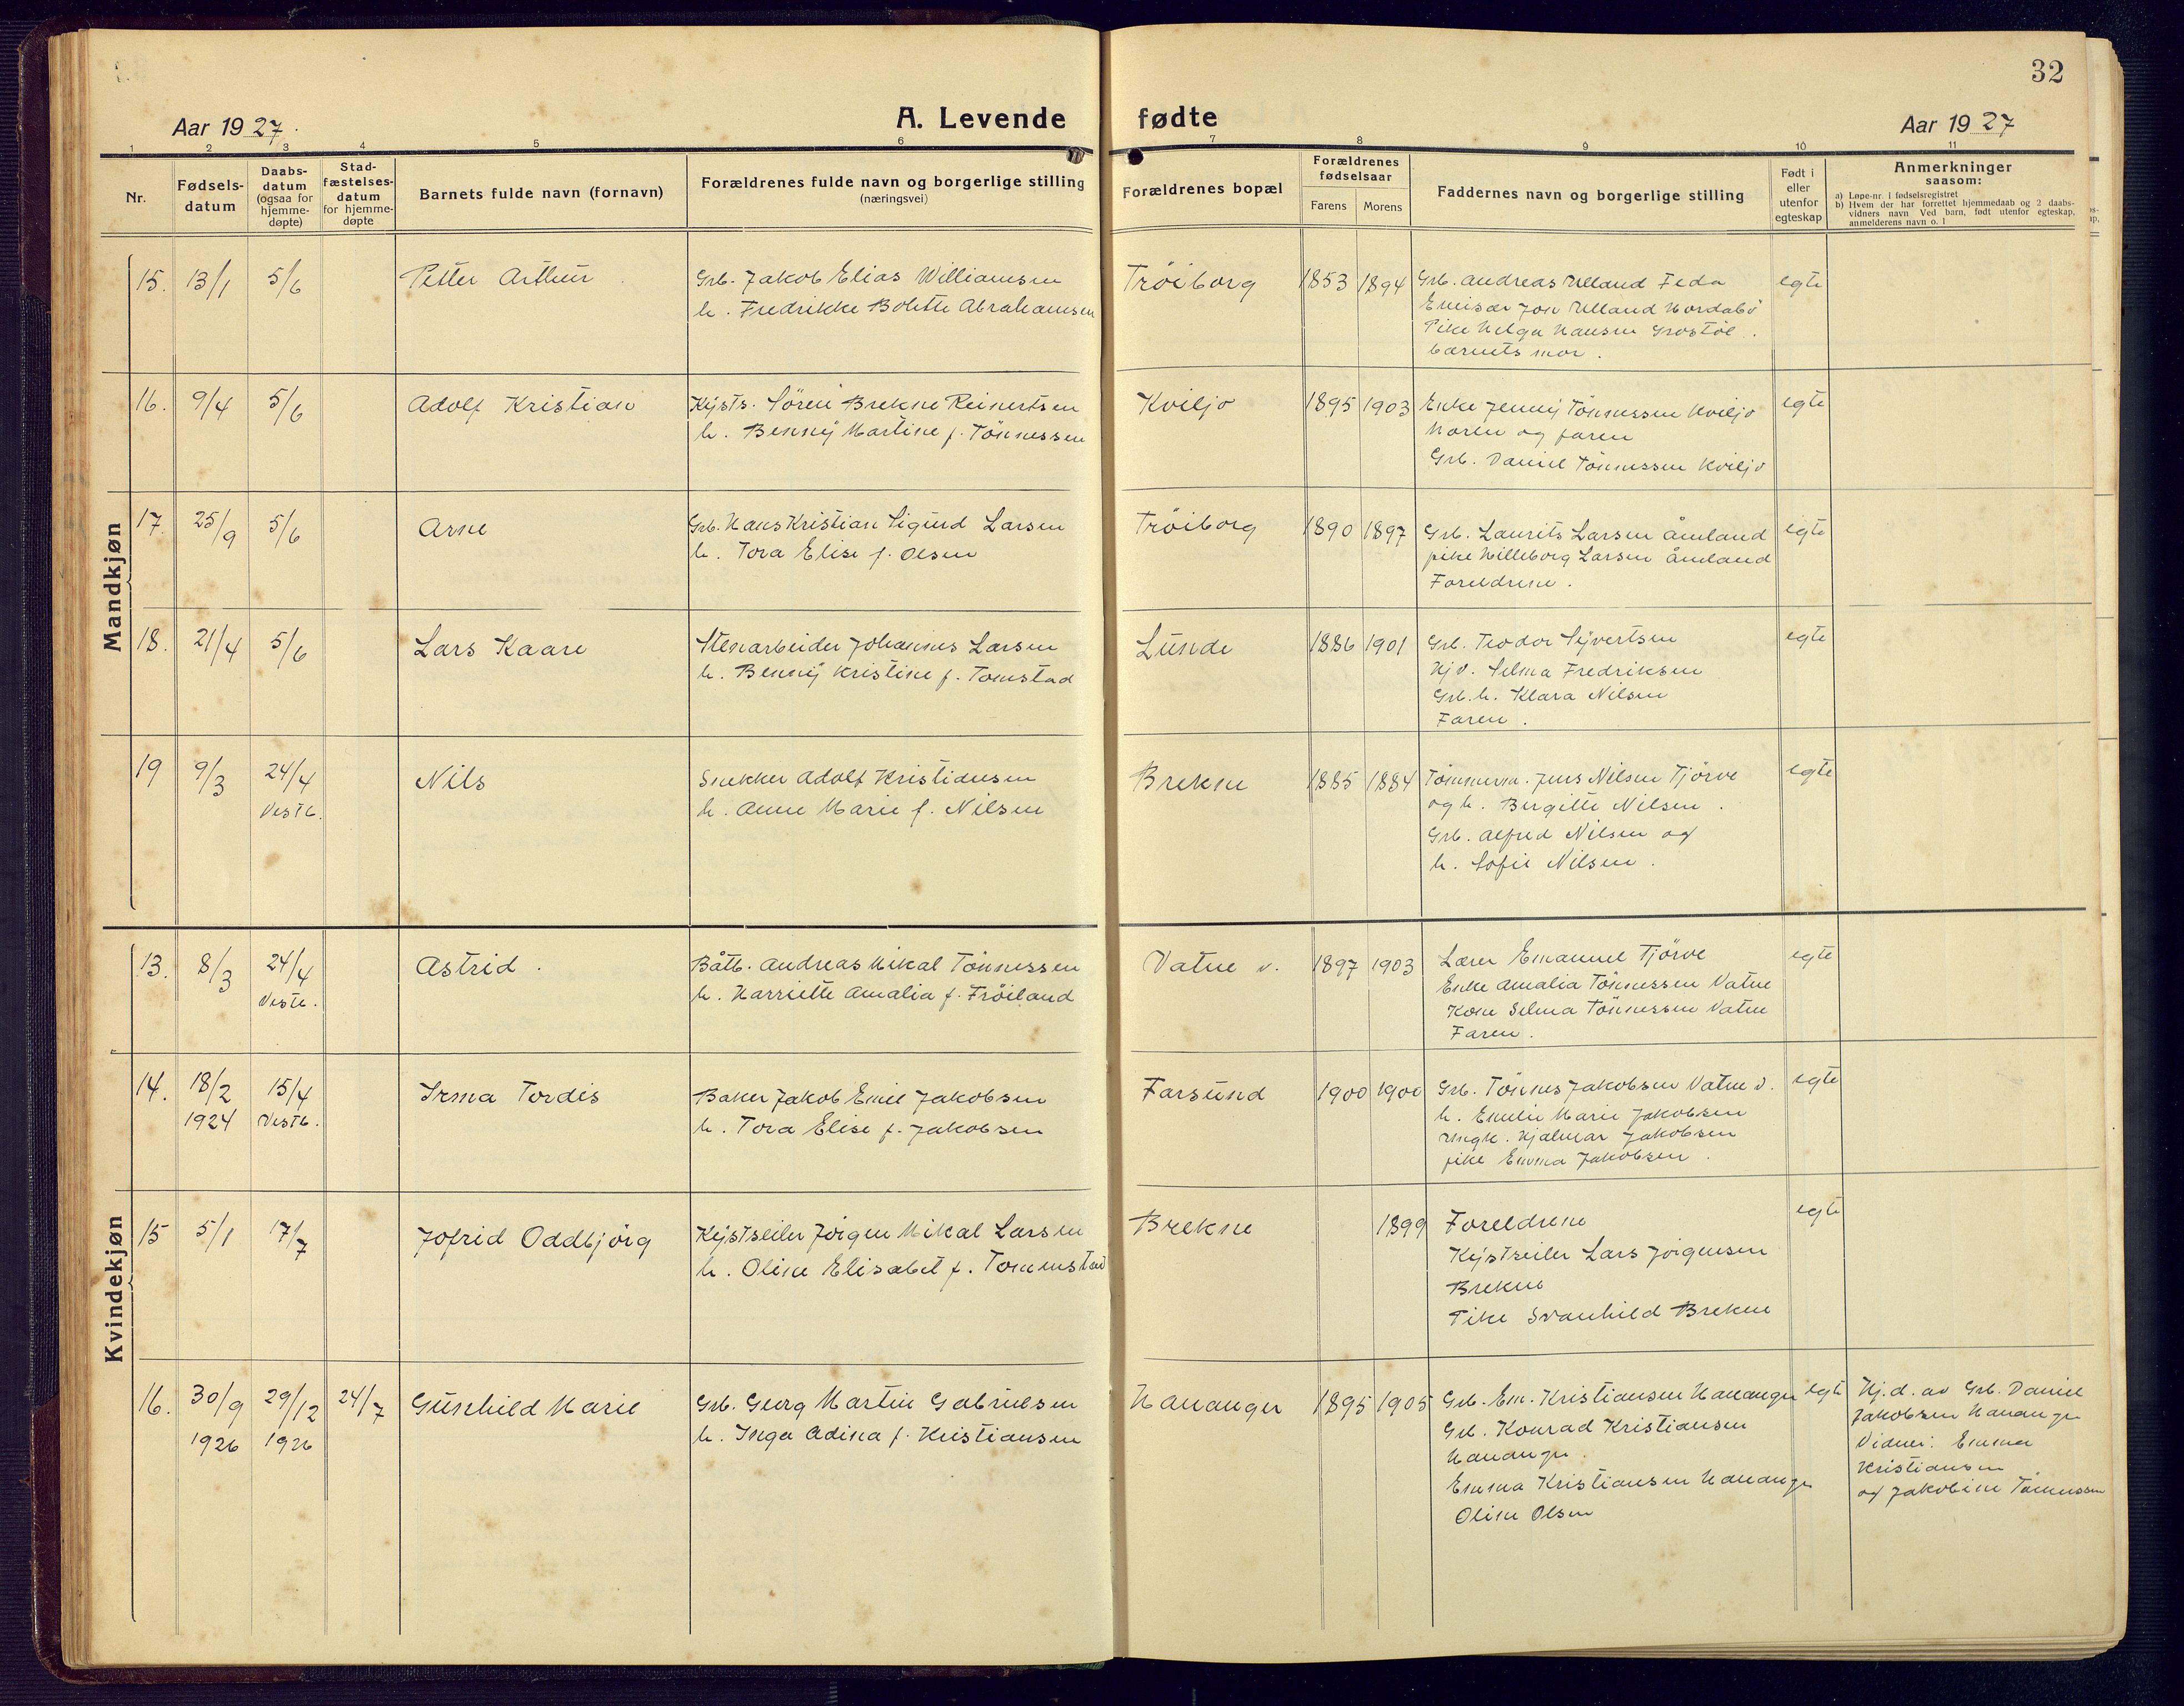 32
Aar 1927.
A. Levende fødte
Aar 1927
1 2 3 4 5 6 7 8 9 10 11
Nr.
Fødsels-
datum
Daabs-
datum
(ogsaa for
hjemme-
døpte)
Stad-
fæstelses-
datum
for hjemme-
døpte
Barnets fulde navn (fornavn)
Forældrenes fulde navn og borgerlige stilling
(næringsvei)
Forældrenes bopæl
Forældrenes
fødselsaar
Farens Morens
Faddernes navn og borgerlige stilling
Født i
eller
utenfor
egteskap
Anmerkninger
saasom:
a) Løpe-nr. i fødselsregistret
b) Hvem der har forrettet hjemmedaab og 2 daabs-
vidners navn Ved barn, født utenfor egteskap,
anmelderens navn o. l
Mandkjøn
15. 13/1 5/6 Petter Arthur
Grb. Jakob Elias Williamsen
h. Fredrikke Bolette Abrahamsen
Tröiborg 1853 1894
Grb. Andreas Ulland Feda
Emisær Jon Ulland Nordabö
Pike Helga Hansen Grostöl.
barnets mor.
egte
16. 9/4 5/6 Adolf Kristian
Kysts. Sören Brekne Reinertsen
h. Benny Martine f. Tönnessen
Kviljo 1895 1903
Enke Jenny Tönnessen Kviljo
Moren og faren
Grb. Daniel Tönnessen Kviljo
egte
17. 25/9 5/6 Arne
Grb. Hans Kristian Sigurd Larsen
h. Tora Elise f. Olsen
Tröiborg 1890 1897
Grb. Laurits Larsen Åmland
pike Hilleborg Larsen Åmland
Foreldrene.
egte
18. 21/4 5/6 Lars Kaare
Stenarbeider Johannes Larsen
h. Benny Kristine f. Tomstad
Lunde 1886 1901
Grb. Teodor Syvertsen
Hjv. Selma Fredriksen
Grb. h. Klara Nilsen
Faren.
egte
19 9/3 24/4
Vestb.
Nils
Snekker Adolf Kristiansen
h. Anne Marie f. Nilsen
Brekne 1885 1884
Tömmerm. Jens Nilsen Tjörve
og h. Bergitte Nilsen.
Grb. Alfred Nilsen og
h. Sofie Nilsen.
egte
Kvindekjøn
13. 8/3 24/4
Vestb.
Astrid.
Båtb. Andreas Mikal Tönnessen
h. Harriette Amalia f. Fröiland
Vatne v. 1897 1903
Lærer Emanuel Tjörve
Enke Amalia Tönnessen Vatne
Kone Selma Tönnessen Vatne
Faren.
egte
14. 18/2 15/4
1924 Vestb.
Irma Tordis
Baker Jakob Emil Jakobsen
h. Tora Elise f. Jakobsen
Farsund 1900 1900
Grb. Tönnes Jakobsen Vatne v.
h. Emelie Marie Jakobsen
Ungk. Hjalmar Jakobsen
pike Emma Jakobsen.
egte
15 5/1 17/7 Jofrid Oddbjörg
Kystseiler Jörgen Mikal Larsen
h. Oline Elisabet f. Tommstad
Brekne 1899
Foreldrene
Kystseiler Lars Jörgensen
Brekne
Pike Svanhild Brekne
egte
16. 30/9 29/12 24/7
1926 1926
Gunhild Marie
Grb. Georg Martin Gabrielsen
h. Inga Adina f. Kristiansen
Hananger 1895 1905
Grb. Em. Kristiansen Hananger
Grb. Konrad Kristiansen
Hananger.
Emma Kristiansen Hananger
Oline Olsen
egte
Hj.d. av Grb. Daniel
Jakobsen Hananger
Vidner: Emma
Kristiansen
og Jakobine Tönnessen